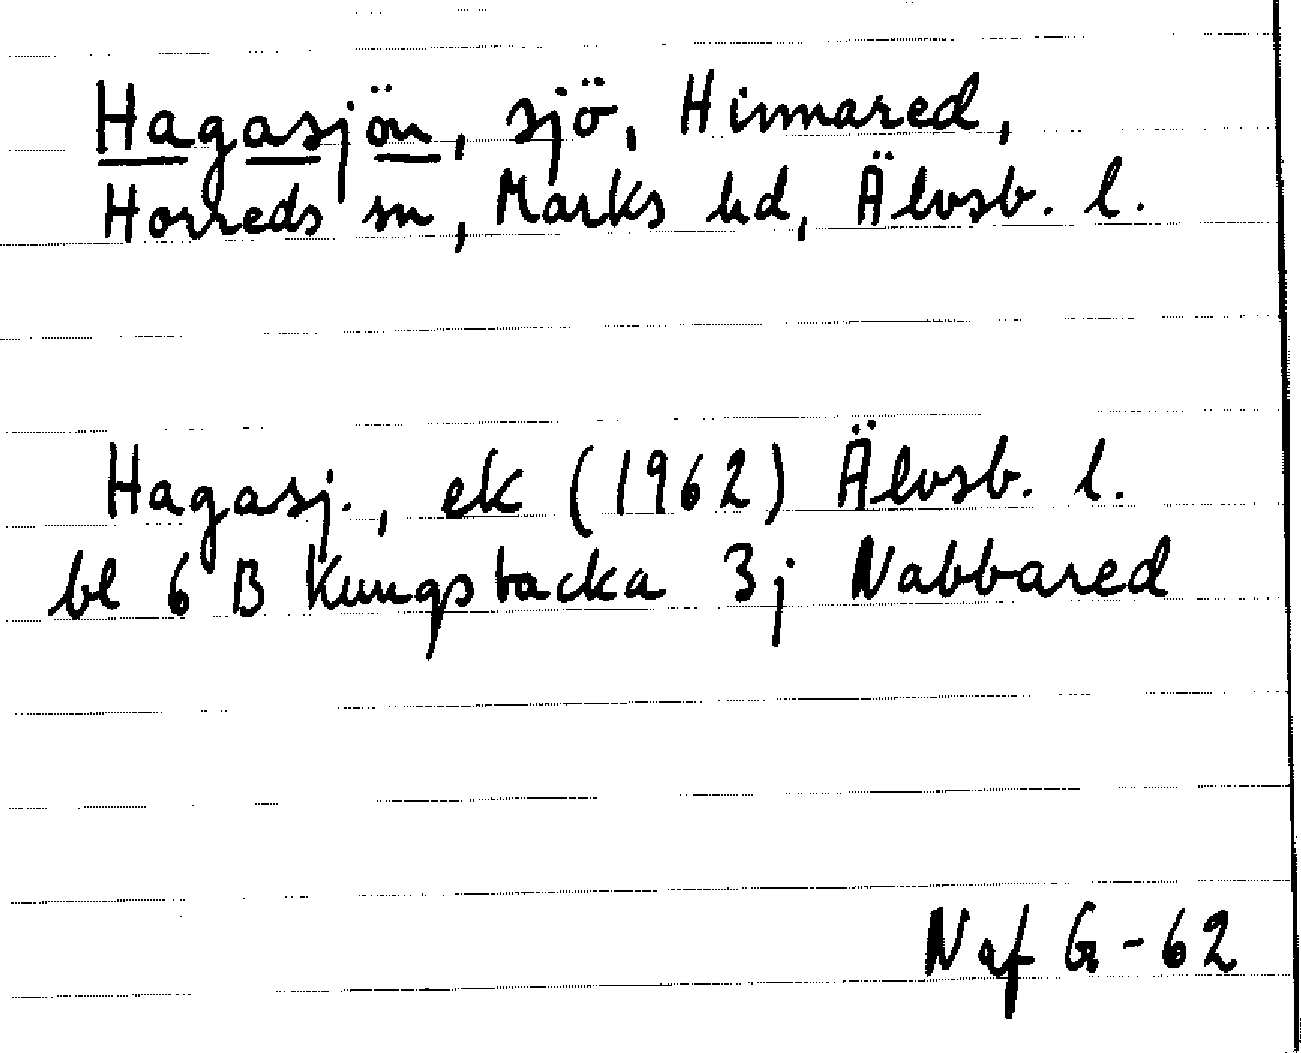 Hagasjön, sjö, Hinnared,
Horreds sn, Marks hd, Älvsb. l.
Hagasj., ek (1962) Älvsb. l.
bl 6 B Kungsbacka 3j Nabbared
Naf G-62